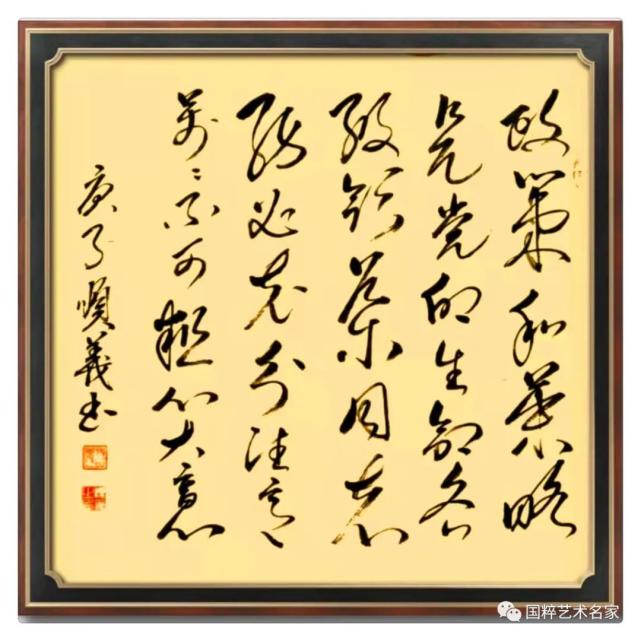 政策和策略
是党的生命各
级领导同志
务必充分注意
万〻不可粗心大意
庚子順義书
国粹艺术名家